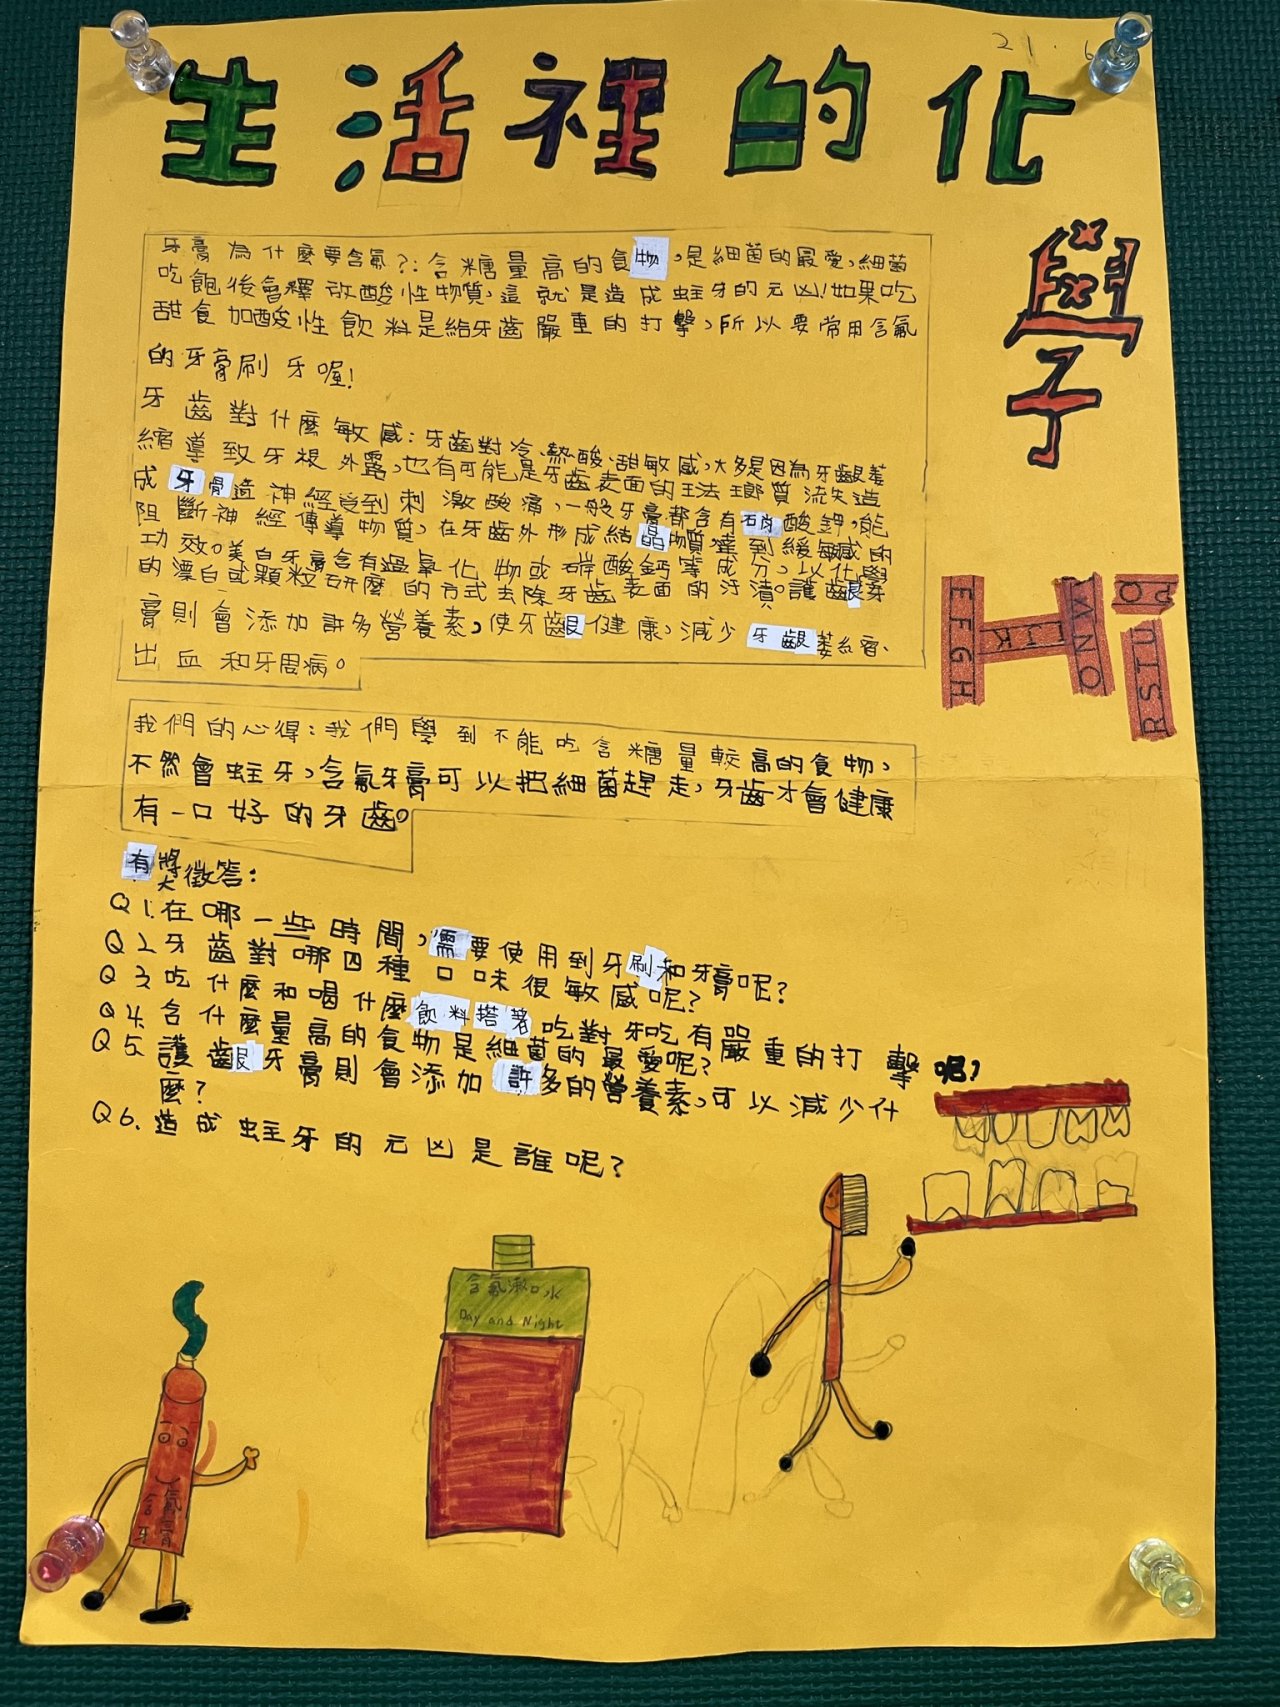 21.6
生活裡的化學子
牙膏為什麼要含氟?:含糖量高的食物,是細菌的最愛,細菌
吃飽後會釋放酸性物質,這就是造成蛀牙的元凶!如果吃
甜食加酸性飲料是給牙齒嚴重的打擊,所以要常用含氟
的牙膏刷牙喔!
牙齒對什麼敏感:牙齒對冷、熱、酸、甜敏感,大多是因為牙齦萎
縮導致牙根外露,也有可能是牙齒表面的琺瑯質流失造
成牙骨造神經受到刺激酸痛,一般牙膏都含有硝酸鉀,能
阻斷神經傳導物質,在牙齒外形成結晶物質達到緩敏感的
功效。美白牙膏含有過氧化物或碳酸鈣等成分,以化學
的漂白或顆粒研磨的方式去除牙齒表面的汙漬。護齦牙
膏則會添加許多營養素,使牙齦健康,減少牙齦萎縮、
出血和牙周病。
EFGH
IJK
MANO
QW
RSTU
我們的心得:我們學到不能吃含糖量較高的食物,
不然會蛀牙,含氟牙膏可以把細菌趕走,牙齒才會健康
有一口好的牙齒。
有獎徵答:
Q1.在哪一些時間,需要使用到牙刷和牙膏呢?
Q2.牙齒對哪四種口味很敏感呢?
Q3.吃什麼和喝什麼飲料搭著吃對牙吃有嚴重的打擊呢?
Q4.含什麼量高的食物是細菌的最愛呢?
Q5.護齦牙膏則會添加許多的營養素,可以減少什
麼?
Q6.造成蛀牙的元凶是誰呢?
含氟漱口水
Day and Night
含氟牙膏